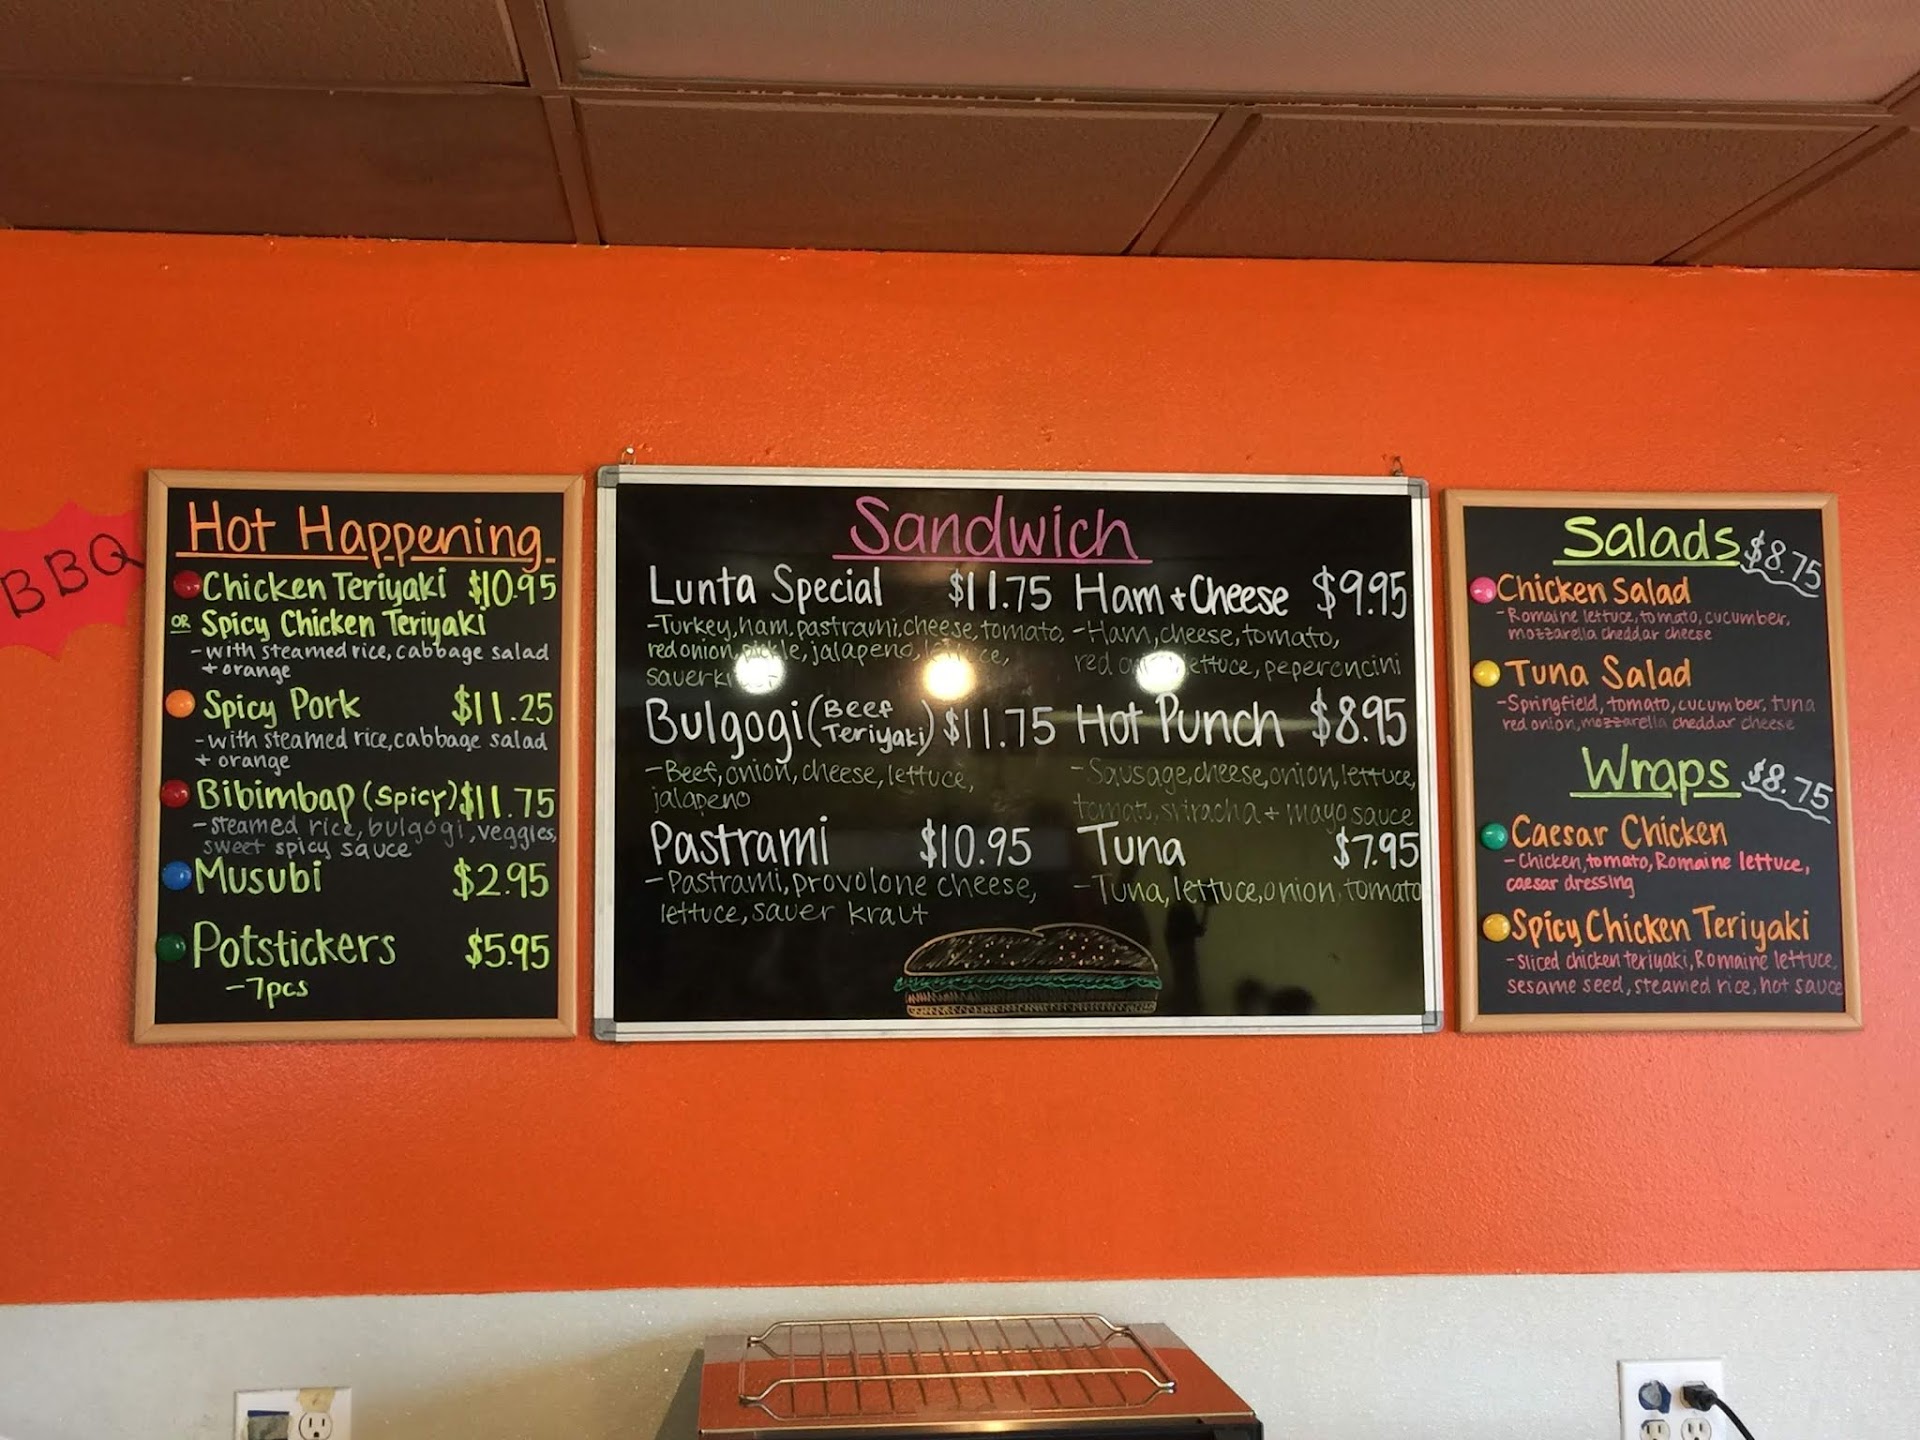 BBQ
Hot Happening
Chicken Teriyaki $10.95
OR Spicy Chicken Teriyaki
-with steamed rice, cabbage salad
+ orange
Spicy Pork $11.25
-with steamed rice, cabbage salad
+ orange
Bibimbap (Spicy) $11.75
-steamed rice, bulgogi, veggies,
sweet spicy sauce
Musubi $2.95
Potstickers $5.95
-7pcs
Sandwich
Lunta Special $11.75
-Turkey, ham, pastrami, cheese, tomato,
red onion, pickle, jalapeno, lettuce,
sauerkraut
Bulgogi (Beef Teriyaki) $11.75
-Beef, onion, cheese, lettuce,
jalapeno
Pastrami $10.95
-Pastrami, provolone cheese,
lettuce, sauer kraut
Ham + Cheese $9.95
-Ham, cheese, tomato,
red onion, lettuce, peperoncini
Hot Punch $8.95
-Sausage, cheese, onion, lettuce,
tomato, sriracha + mayo sauce
Tuna $7.95
-Tuna, lettuce, onion, tomato
Salads $8.75
Chicken Salad
-Romaine lettuce, tomato, cucumber,
mozzarella cheddar cheese
Tuna Salad
-Springfield, tomato, cucumber, tuna
red onion, mozzarella cheddar cheese
Wraps $8.75
Caesar Chicken
-Chicken, tomato, Romaine lettuce,
caesar dressing
Spicy Chicken Teriyaki
-sliced chicken teriyaki, Romaine lettuce,
sesame seed, steamed rice, hot sauce